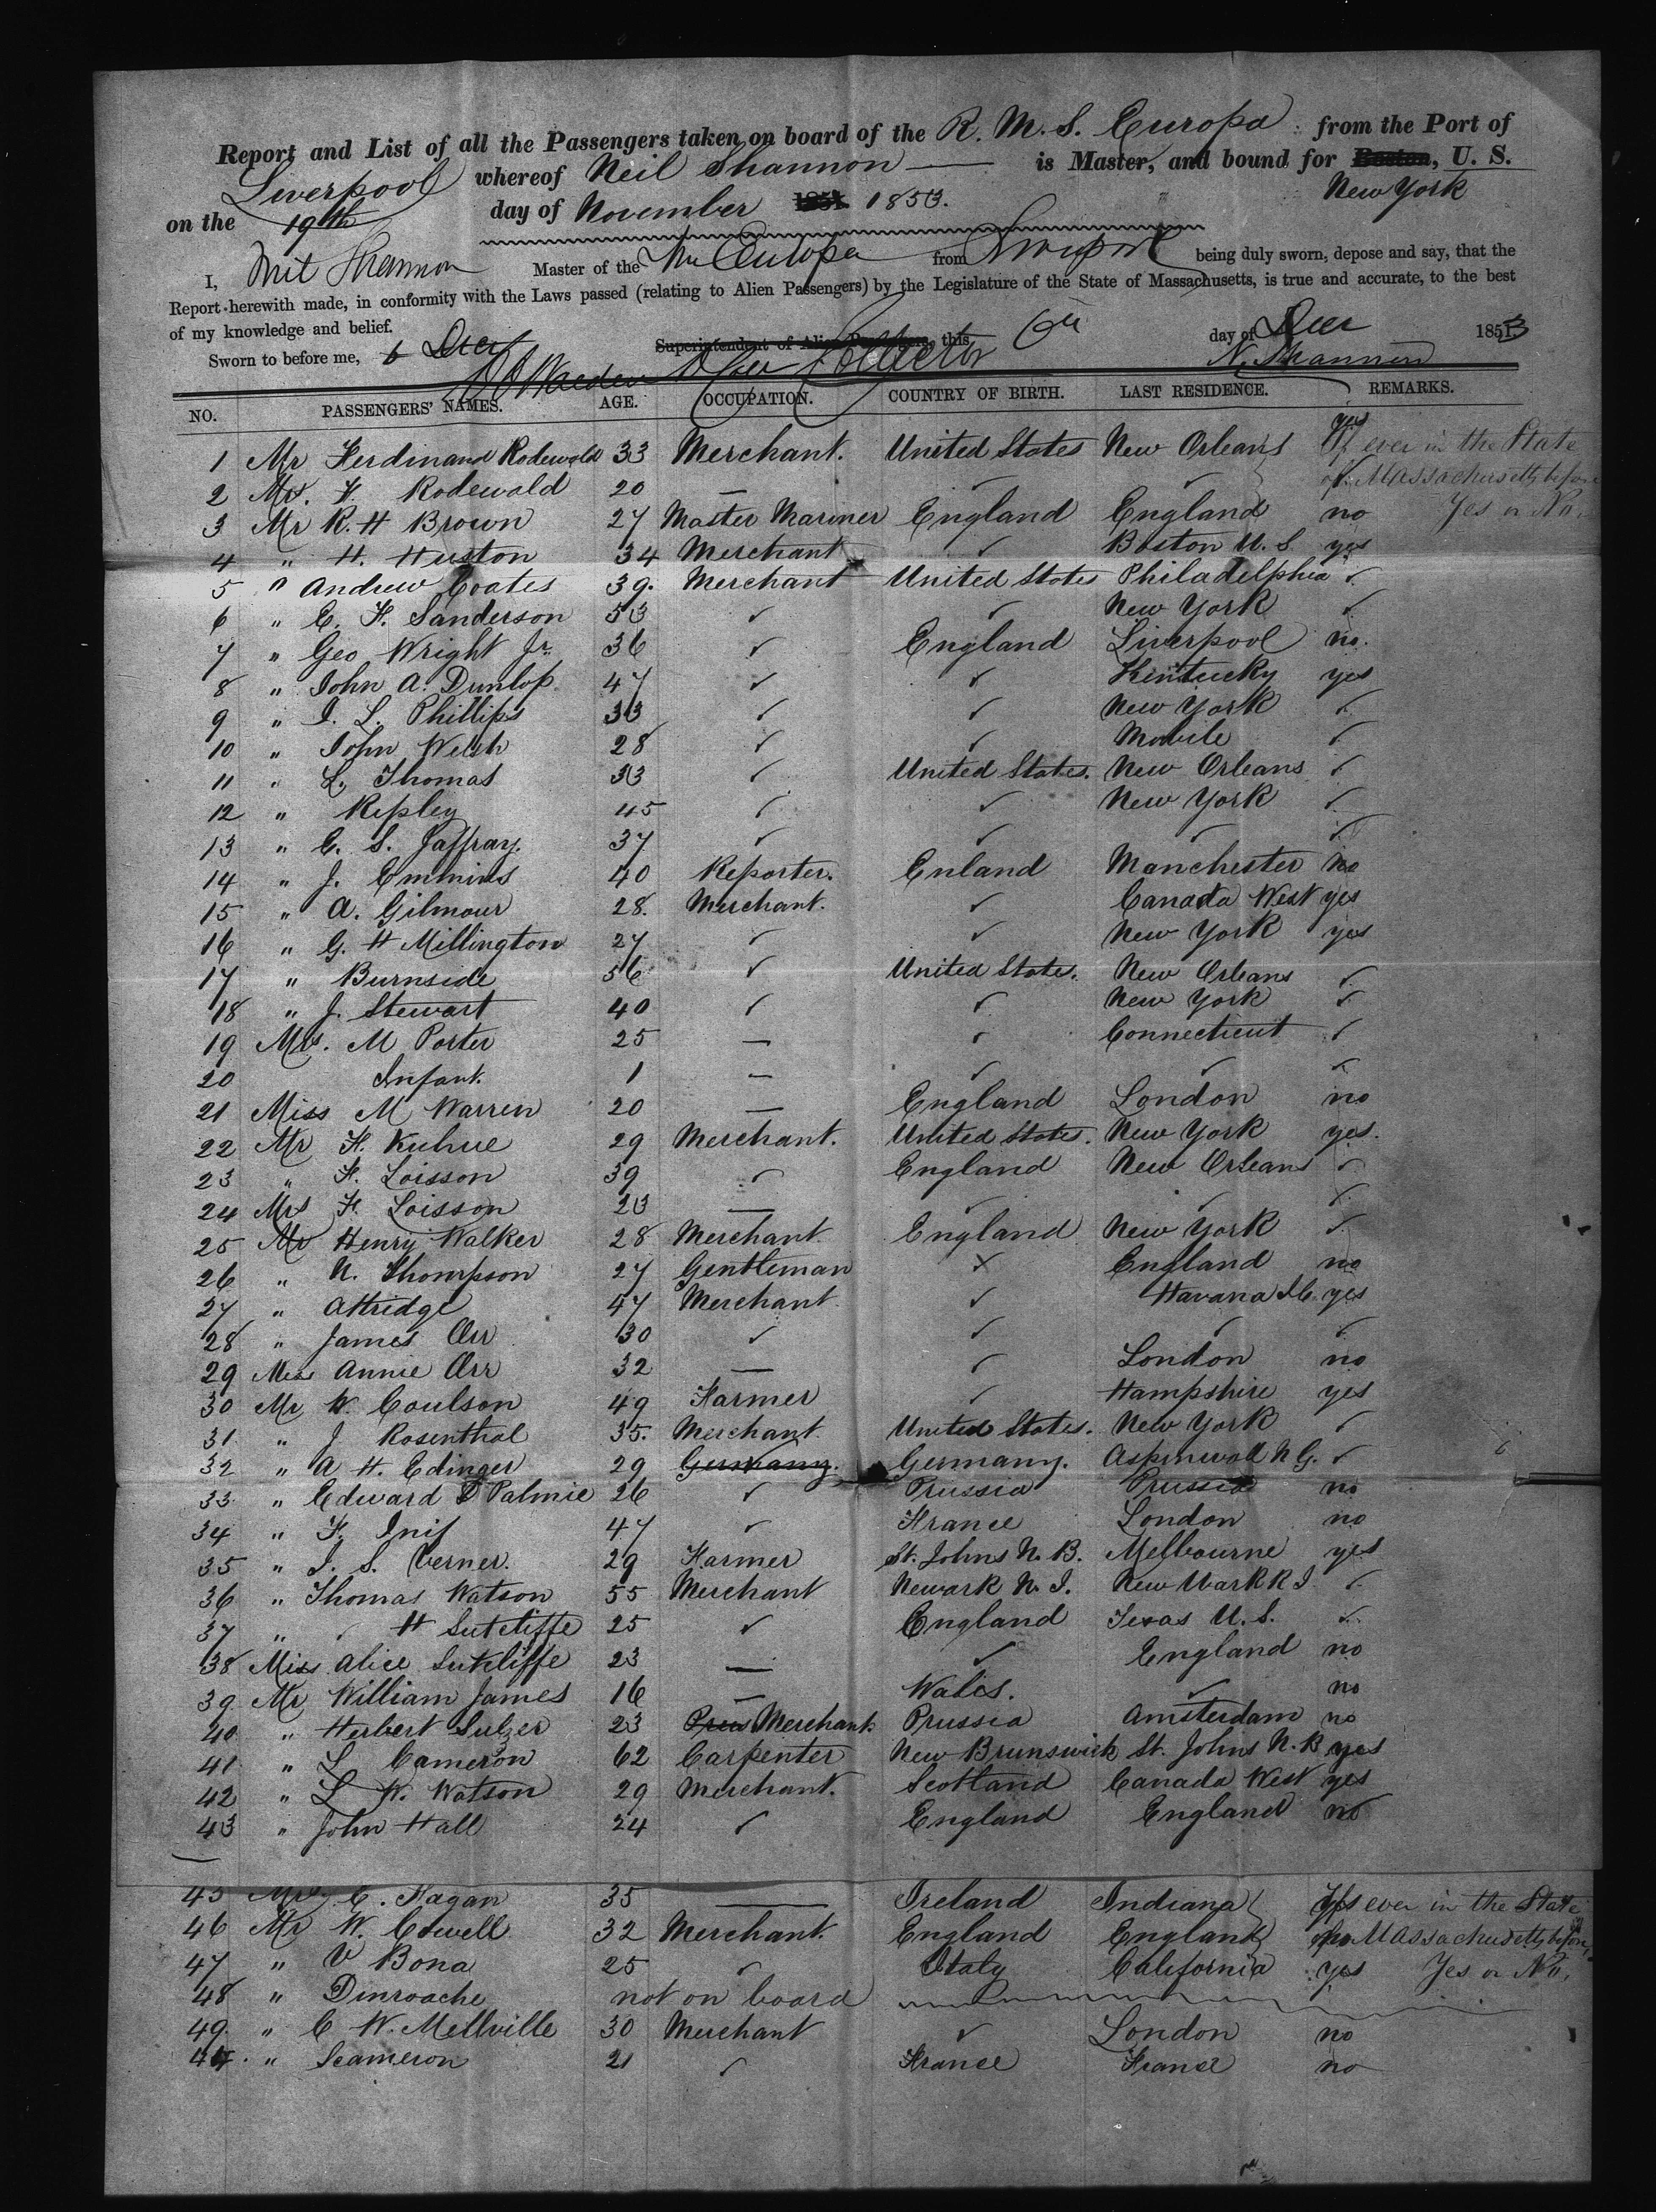 Report and List of all the Passengers taken on board of the R. M. S. Europa from the Port of
Liverpool whereof Neil Shannon — is Master, and bound for Boston, U. S.
New York
on the 19th day of November 1851 1853.
I, Neil Shannon Master of the Str Europa from Liverpool being duly sworn, depose and say, that the
Report herewith made, in conformity with the Laws passed (relating to Alien Passengers) by the Legislature of the State of Massachusetts, is true and accurate, to the best
of my knowledge and belief.
Sworn to before me, 6 Decr Superintendent of Alien Passengers, this 6th day of Decr 1853
Collector N. Shannon
NO. PASSENGERS' NAMES. AGE. OCCUPATION. COUNTRY OF BIRTH. LAST RESIDENCE. REMARKS.
1 Mr Ferdinand Rodewald 33 Merchant. United States New Orleans yes If ever in the State
2 Mrs. F. Rodewald 20 — ✓ ✓ of Massachusetts before
3 Mr R. H Brown 27 Master Mariner England England no Yes or No.
4 " H. Huston 34 Merchant ✓ Boston U. S. yes
5 " Andrew Coates 39. Merchant United States Philadelphia ✓
6 " E. F. Sanderson 53 ✓ ✓ New York ✓
7 " Geo Wright Jr. 36 ✓ England Liverpool no.
8 " John A. Dunlop 47 ✓ ✓ Kentucky yes
9 " I. L. Phillips 33 ✓ ✓ New York ✓
10 " John Welsh 28 ✓ ✓ Mobile ✓
11 " L. Thomas 33 ✓ United States. New Orleans ✓
12 " Repley 45 ✓ ✓ New York ✓
13 " E. S. Jaffray. 37 ✓ ✓ ✓ ✓
14 " J. Emmins 40 Reporter. Enland Manchester no
15 " A. Gilmour 28. Merchant. ✓ Canada West yes
16 " G. H Millington 27 ✓ ✓ New York yes
17 " Burnside 56 ✓ United States. New Orleans ✓
18 " J. Stewart 40 ✓ ✓ New York ✓
19 Mrs. M Porter 25 — ✓ Connecticut ✓
20 Infant. 1 — ✓ ✓ ✓
21 Miss M Warren 20 — England London no
22 Mr F. Kuhue 29 Merchant. United States. New York yes.
23 " F. Loisson 39 ✓ England New Orleans ✓
24 Mrs F. Loisson 23 — ✓ ✓ ✓
25 Mr Henry Walker 28 Merchant England New York ✓
26 " N. Thompson 27 Gentleman × England no
27 " Attridge 47 Merchant ✓ Havana I.C. yes
28 " James Orr 30 ✓ ✓ ✓ ✓
29 Miss Annie Orr 32 — ✓ London no
30 Mr W. Coulson 49 Farmer ✓ Hampshire yes
31 " J Rosenthal 35. Merchant United States. New York ✓
32 " A H. Edinger 29 Germany. Germany. Aspinwall N G. ✓
33 " Edward D Palmie 26 ✓ Prussia Prussia no
34 " F. Inif 47 ✓ France London no
35 " I. S. Verner. 29 Farmer St. Johns N. B. Melbourne yes
36 " Thomas Watson 55 Merchant Newark N. J. New Wark R J. ✓
37 " ✓ H Sutcliffe 25 ✓ England Texas U. S. ✓
38 Miss Alice Sutcliffe 23 — ✓ England no
39. Mr William James 16 — Wales. ✓ no
40 " Herbert Sulzer 23 Prus Merchant Prussia Amsterdam no
41 " L Cameron 62 Carpenter New Brunswick St. Johns N. B yes
42 " L W. Watson 29 Merchant. Scotland Canada West yes
43 " John Hall 24 ✓ England England no
45 Mrs C. Fagan 35 — Ireland Indiana yes If ever in the State
46 Mr W. Cowell 32 Merchant. England England no of Massachusetts before,
47 " V Bona 25 ✓ Italy California yes Yes or No.
48 " Dinroache not on board
49. " C W. Mellville 30 Merchant ✓ London no
44. " Scameron 21 ✓ France France no